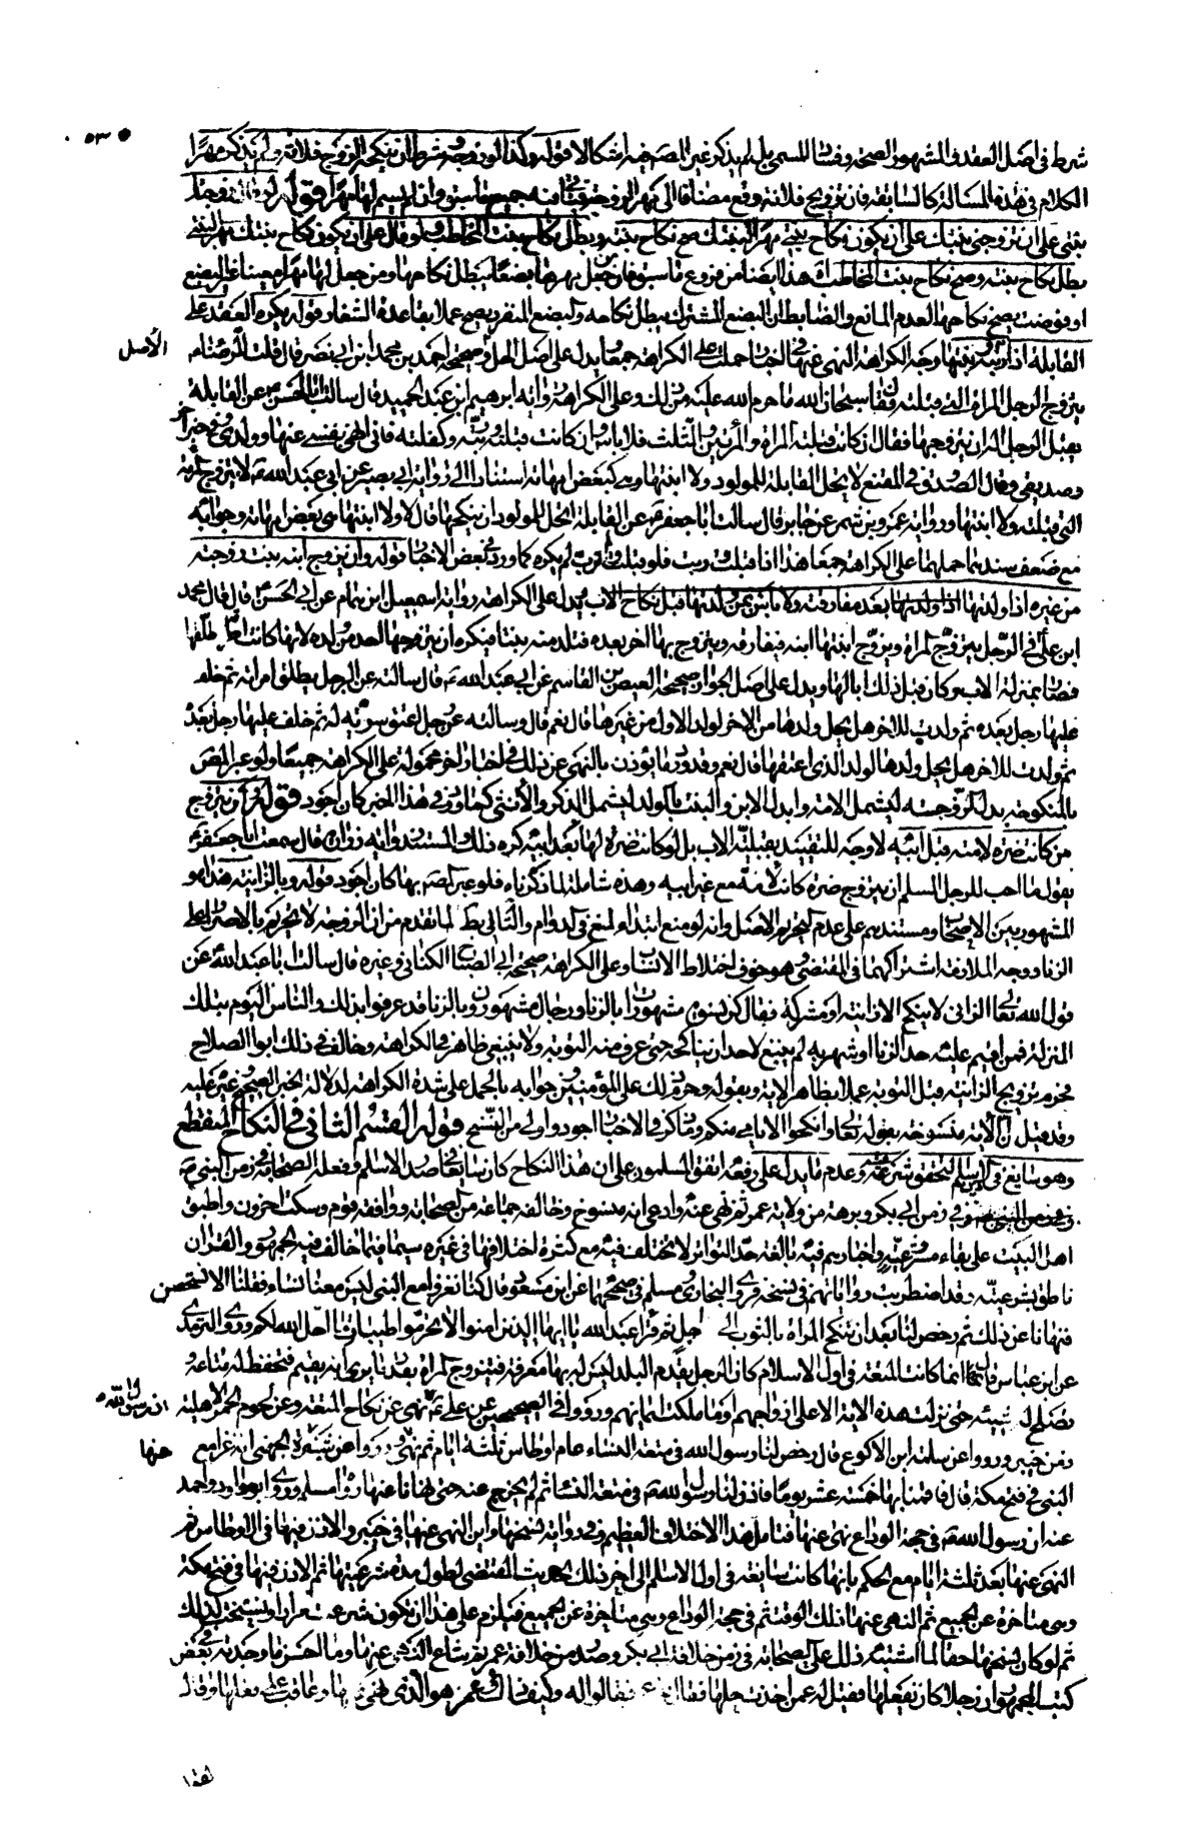 ٥٣
شرط في اصل العقد والمشهور الصحة وفساد المسمى بل لم يذكر غير المص فيه اشكالا قوله وكذا لو زوجه وشرط ان ينكحه الزوج فلانة ولم يذكر مهرا
الكلام في هذه المسالة كالسابقة فان تزويج فلانة وقع مضافا الى مهر الزوجة فيه جميع ما سبق وان لم يسم لها مهرا قوله لو قال زوجتك
بنتي على ان تزوجني بنتك على ان يكون نكاح بنتي مهرا لبنتك صح نكاح بنته وبطل نكاح بنت المخاطب ولو قال على ان يكون نكاح بنتك مهر لبنتي
بطل نكاح بنته وصح نكاح بنت المخاطب هذا ايضا من فروع ما سبق فان جعل مهرها بضعا يبطل نكاحها ومن جعل لها مهرا معينا غير البضع
او فوضت يصح نكاحها لعدم المانع والضابط ان البضع المشترك يبطل نكاحه والبضع المنفرد يصح عملا بقاعدة الشغار قوله يكره العقد على
القابلة اذا ربته وبنتها وجه الكراهة النهي عنها في اخبار حملت على الكراهة جمعا يدل على اصل الحل صحيحة احمد بن محمد ابن ابي نصر قال قلت للرضا ع
الأصل
يتزوج الرجل المراة التي قبلته فقال سبحان الله ما حرم الله عليه من ذلك وعلى الكراهة رواية ابرهيم ابن عبد الحميد قال سالت ابا الحسن عن القابلة
يقبل الرجل اله ان يتزوجها فقال ان كانت قبلته المرة والمرتين والثلث فلا باس وان كانت قبلته وربته وكفلته فاني انهى نفسي عنها وولدي وفي خبر آخر
وصديقي وقال الصدوق في المقنع لا يحل القابلة للمولود ولا ابنتها وهي كبعض امهاته استنادا الى رواية ابي بصير عن ابي عبد الله ع لا يتزوج المراة
التي قبلته ولا ابنتها ورواية عمرو بن شمر عن جابر قال سالت ابا جعفر ع عن القابلة ايحل للمولود ان ينكحها قال لا ولا ابنتها هي بعض امهاته وجوابه
مع ضعف سندهما حملهما على الكراهة جمعا هذا اذا قبلت وربت فلو قبلت ولم ترب لم يكره كما ورد في بعض الاخبار قوله وان يزوج ابنه بنت زوجته
من غيره اذا ولدتها بعد مفارقته ولا باس بمن ولدتها قبل نكاح الاب يدل على الكراهة رواية اسمعيل ابن همام عن ابي الحسن ع قال قال محمد
ابن علي في الرجل يتزوج المراة ويزوج ابنتها ابنه فيفارقه ويتزوج بها اخر بعده فتلد منه بنتا فيكره ان يتزوجها احد من ولده لانها كانت امراته فطلقها
فصار بمنزلة الاب وكان قبل ذلك ابا لها ويدل على اصل الجواز صحيحة العيص بن القاسم عن ابي عبد الله ع قال سالته عن الرجل يطلق امراته ثم خلف
عليها رجل بعده ثم ولدت للاخر هل يحل ولدها من الاخر لولد الاول من غيرها قال نعم قال وسالته عن رجل اعتق سرية له ثم خلف عليها رجل بعده
ثم ولدت للاخر هل يحل ولدها لولد الذي اعتقها قال نعم وقد ورد ما يؤذن بالنهي عن ذلك في اخبار اخر محمولة على الكراهة جميعا ولو عبر المص
بالمنكوحة بدل الزوجة ليشمل الامة وابدل الابن والبنت بالولد ليشمل الذكر والانثى كما ورد في هذا الخبر كان اجود قوله وان يتزوج
من كانت ضرة لامه قبل ابيه لا وجه للتقييد بقبلية الاب بل لو كانت ضرة لها بعد ابيه كره ذلك والمستند رواية زرارة قال سمعت ابا جعفر ع
يقول ما احب للرجل المسلم ان يتزوج ضرة كانت لامه مع غير ابيه وهذه شاملة لما ذكرناه فلو عبر المص بها كان اجود قوله وبالزانية هذا هو
المشهور بين الاصحاب ومستندهم على عدم التحريم الاصل وانه لو منع ابتداء لمنع في الدوام والتالي بط لما تقدم من ان الزوجة لا تحرم بالاصرار على
الزنا ووجه الملازمة اشتراكهما في المقتضي وهو خوف اختلاط الانساب وعلى الكراهة صحيحة ابي الصباح الكناني وغيره قال سالت ابا عبد الله ع عن
قول الله تعالى الزاني لا ينكح الا زانية او مشركة فقال كن نسوة مشهورات بالزنا ورجال مشهورون بالزنا قد عرفوا بذلك والناس اليوم بتلك
المنزلة فمن اقيم عليه حد الزنا او شهر به لم ينبغ لاحد ان يناكحه حتى يعرف منه التوبة ولا ينبغي ظاهر في الكراهة وخالف في ذلك ابو الصلاح
فحرم تزويج الزانية قبل التوبة عملا بظاهر الاية وبقوله وحرم ذلك على المؤمنين وجوابه بالحمل على شدة الكراهة لدلالة الخبر الصحيح وغيره عليه
وقد قيل ان الاية منسوخة بقوله تعالى وانكحوا الايامى منكم وما ذكر في الاخبار اجود واولى من النسخ قوله القسم الثاني في النكاح المنقطع
وهو سايغ في الاسلام لتحقق شرعيته وعدم ما يدل على رفعه اتفق المسلمون على ان هذا النكاح كان سايغا في صدر الاسلام وفعله الصحابة في زمن النبي ص
وفي زمن ابي بكر وبرهة من ولاية عمر ثم نهى عنه وادعى انه منسوخ وخالفه جماعة من الصحابة ووافقه قوم وسكت اخرون واطبق
اهل البيت على بقاء مشروعيته واخبارهم فيه بالغة حد التواتر لا تختلف فيه مع كثرة اختلافها في غيره سيما فيما خالف فيه الجمهور والقران
ناطق بشرعيته وقد اضطربت رواياتهم في نسخه فروى البخاري ومسلم في صحيحهما عن ابن مسعود قال كنا نغزوا مع النبي ليس معنا نساء فقلنا الا نستحصن
فنهانا عن ذلك ثم رخص لنا بعد ان ننكح المراة بالثوب الى اجل ثم قرأ عبد الله يا ايها الذين امنوا لا تحرموا طيبات ما احل الله لكم وروى الترمذي
عن ابن عباس قال انما كانت المتعة في اول الاسلام كان الرجل يقدم البلد ليس له بها معرفة فيتزوج المراة بقدر ما يرى انه يقيم فتحفظ له متاعه
وتصلح له شيئه حتى نزلت هذه الاية الا على ازواجهم او ما ملكت ايمانهم ورووا في الصحيحين عن علي ع نهى عن نكاح المتعة وعن لحوم الحمر الاهلية
ان رسول الله ص
زمن خيبر ورووا عن سلمة ابن الاكوع قال رخص لنا رسول الله في متعة النساء عام اوطاس ثلثة ايام ثم نهى ورووا عن سبرة الجهني انه غزا مع
عنها
النبي في فتح مكة قال فاقمنا بها خمسة عشر يوما فاذن لنا رسول الله ص في متعة النساء ثم لم يخرج عنه حتى نهانا عنها رواه مسلم وروى ابو داود واحمد
عنه ان رسول الله ص في حجة الوداع نهى عنها فتامل هذا الاختلاف العظيم في رواية نسخها واين النهي عنها في خيبر والاذن فيها في اوطاس ثم
النهي عنها بعد ثلثة ايام مع الحكم بانها كانت سايغة في اول الاسلام الى اخر ذلك الحديث المقتضي لطول مدة شرعيتها ثم الاذن فيها في فتح مكة
وهي متاخرة عن الجميع ثم النهي عنها ذلك الوقت ثم في حجة الوداع وهي متاخرة عن الجميع فيلزم على هذا ان تكون شرعت مرارا ونسخت كذلك
ثم لو كان نسخها حقا لما اشتبه ذلك على الصحابة في زمن خلافة ابي بكر وصدر من خلافة عمر ثم شاع النهي عنها وما احسن ما وجدته في بعض
كتب الجمهور ان رجلا كان يفعلها فقيل له عمن اخذت حلها فقال عن عمر فقالوا له وكيف ذلك وعمر هو الذي نهى عنها وعاقب على فعلها فقال
لقوله